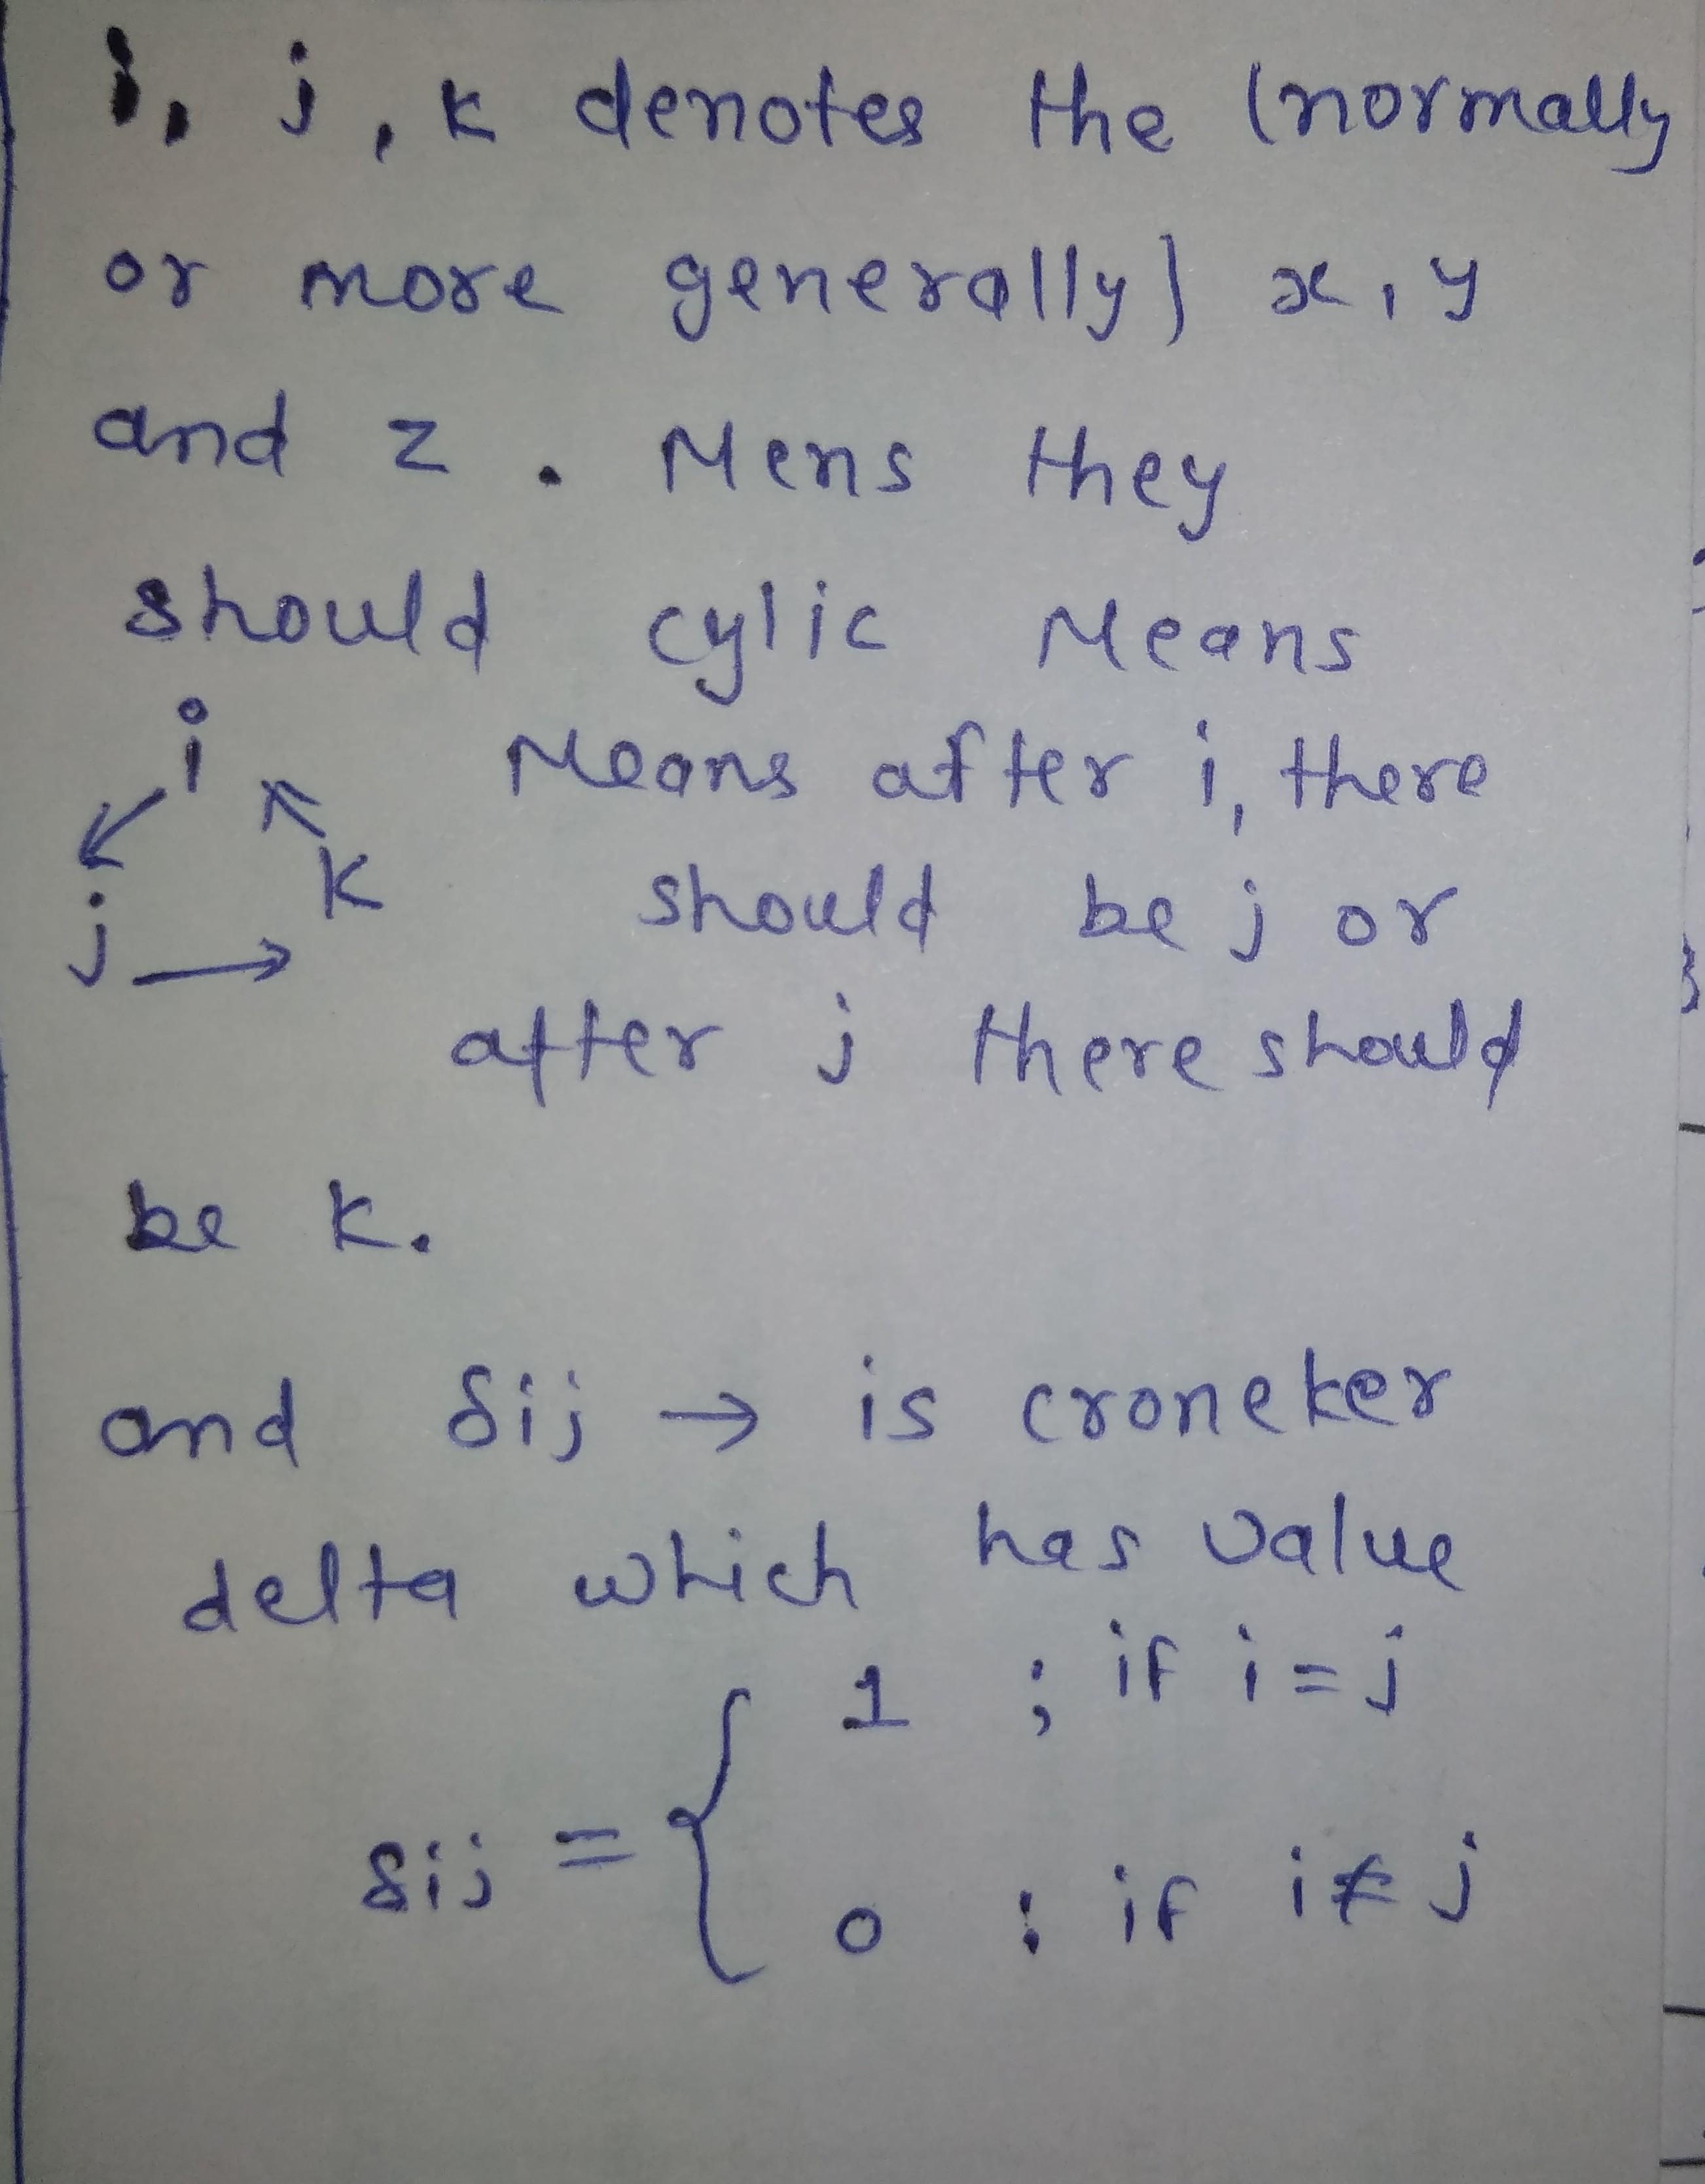 i, j, k denotes the (normally
or more generally) x, y
and z. Mens they
should cylic Means
i Means after i, there
k should be j or
j → after j there should
be k.
and δij → is croneker
delta which has value
1 ; if i = j
δij = {
0 ; if i ≠ j